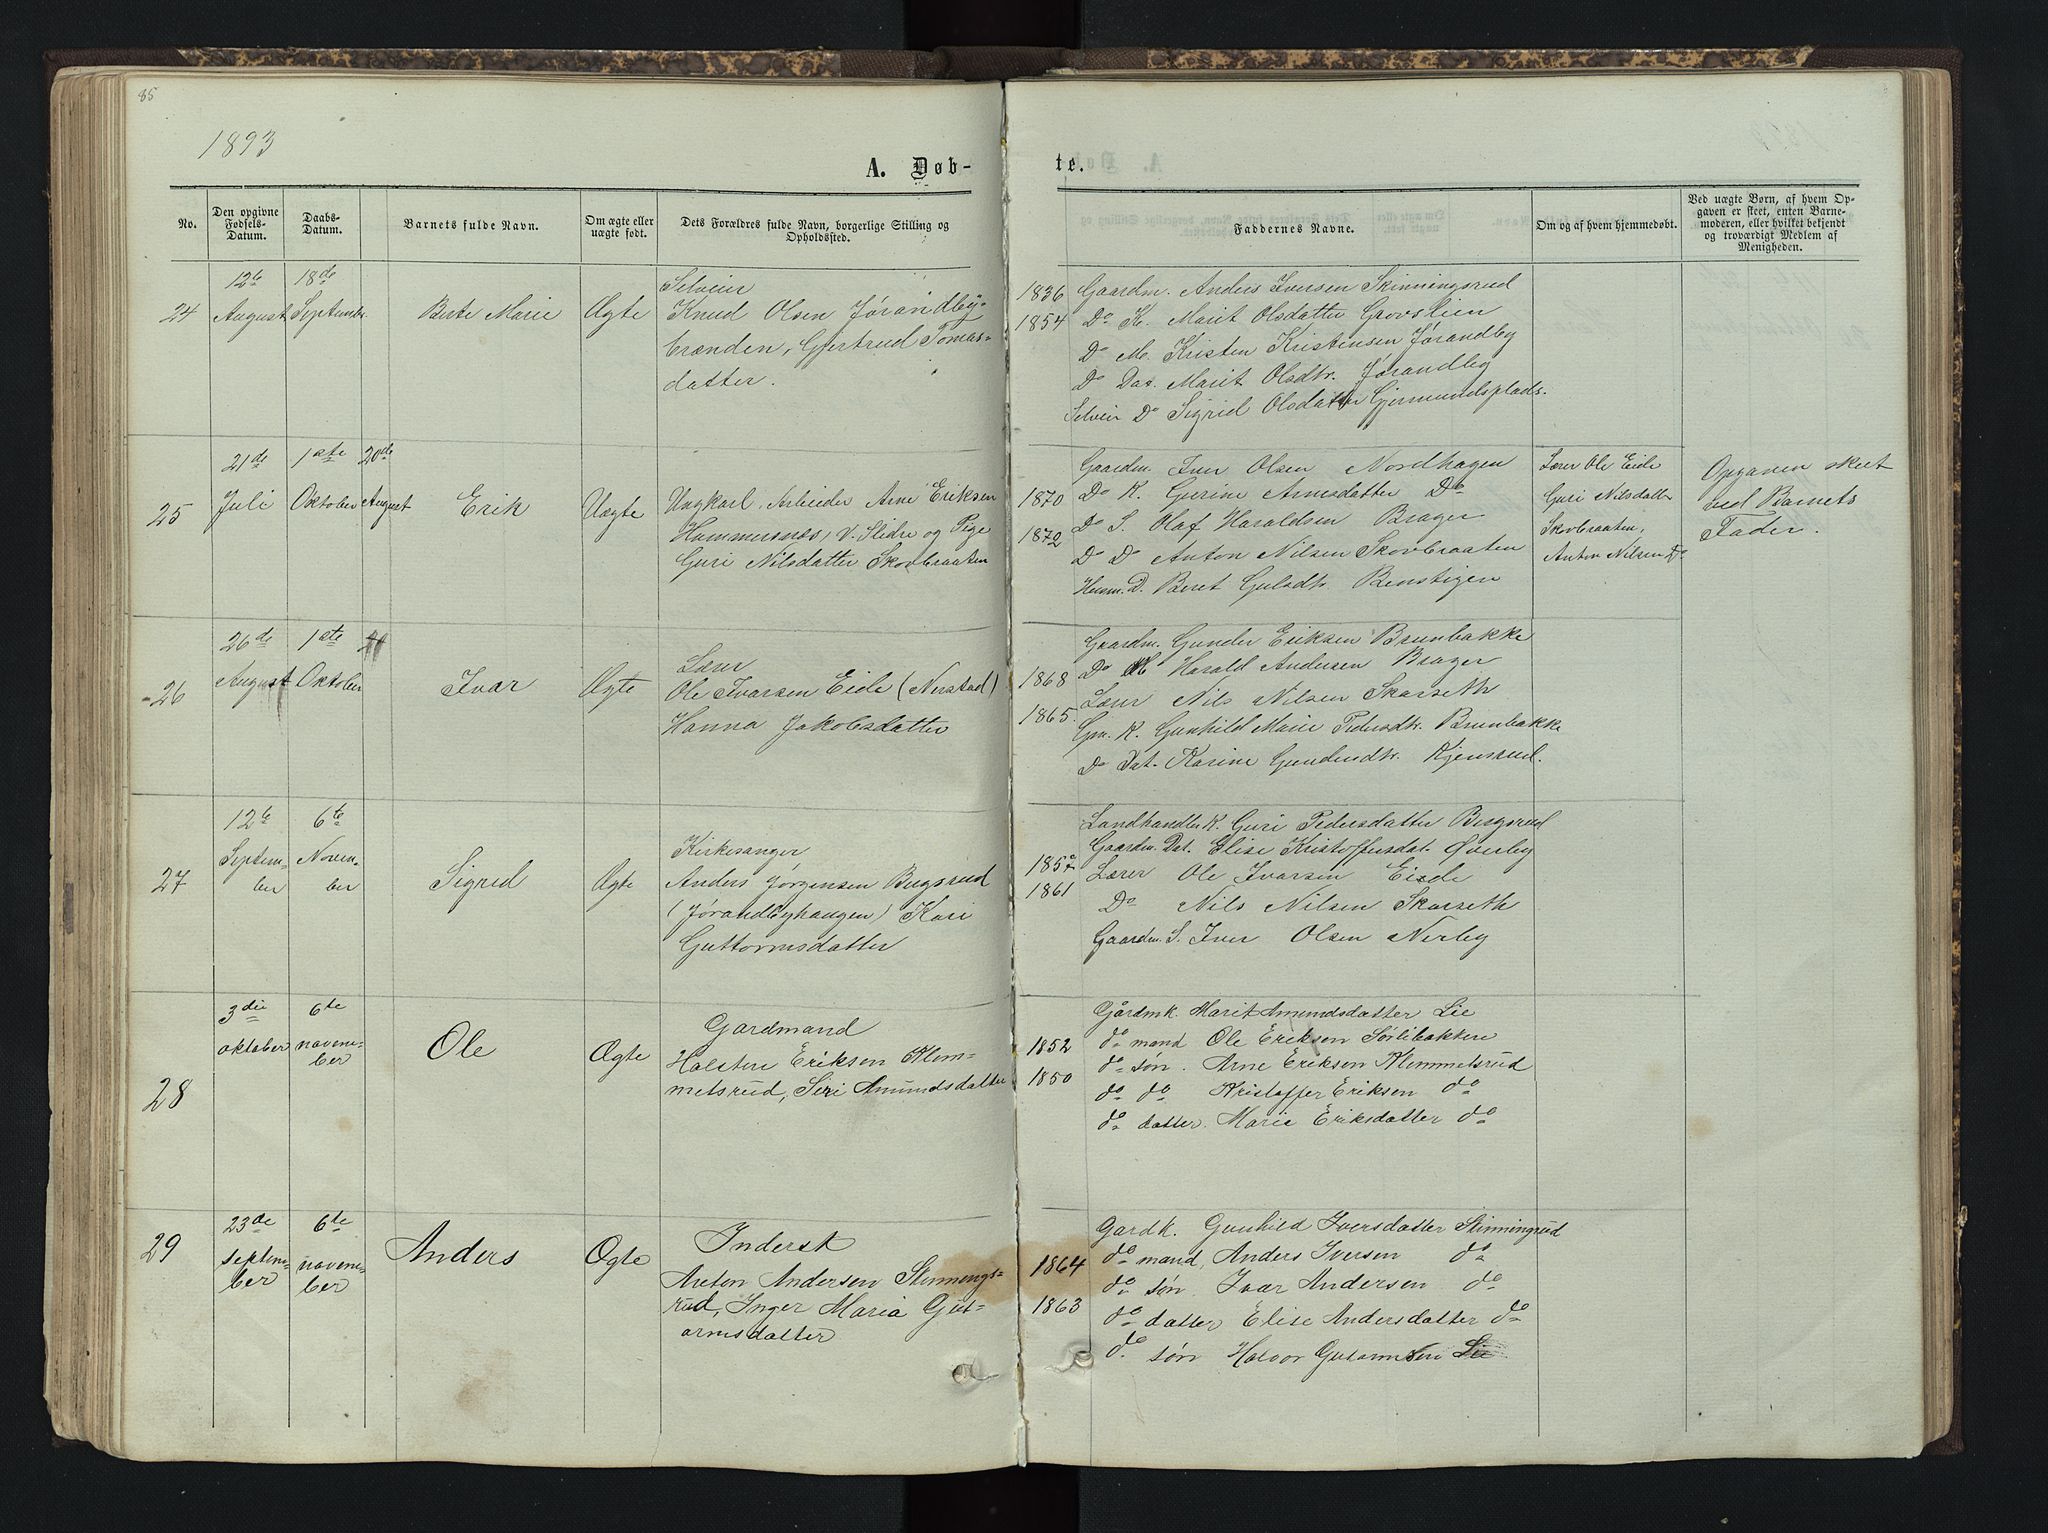 85
1893
A. Døb-
te.
No.
Den opgivne Fødsels-Datum.
Daabs-Datum.
Barnets fulde Navn.
Om ægte eller uægte født.
Dets Forældres fulde Navn, borgerlige Stilling og Opholdssted.
Faddernes Navne.
Om og af hvem hjemmedøbt.
Ved uægte Børn, af hvem Op-
gaven er skeet, enten Barne-
moderen, eller hvilket bekjendt
og troværdigt Medlem af
Menigheden.
24
12te
August
18de
Septembr.
Berte Marie
Ægte
Selveier
Knud Olsen Jørandby-
brænden, Gjertrud Tomas-
datter.
1836
1854
Gaardm. Anders Iversen Skinningsrud
Do K. Marit Olsdatter Grovslien
Do M. Kristen Kristensen Jørandby
Do Dat. Marit Olsdtr. Jørandby
Selveier Do Sigrid Olsdatter Gjermundsplads.
25
21de
Juli
1ste
Oktober
20de
August
Erik
Uægte
Ungkarl, Arbeider Arne Eriksen
Hammersnæs, V. Slidre og Pige
Guri Nilsdatter Skovbraaten
1870
1872
Gaardm. Iver Olsen Nordhagen
Do K. Gurine Arnesdatter Do
Do S. Olaf Haraldsen Brager
Do Do Anton Nilsen Skovbraaten
Husm. D. Beret Gulsdtr. Benstigen
Lærer Ole Eide
Guri Nilsdatter
Skovbraaten,
Anton Nilsen Do
Opgaven skeet
ved Barnets
Fader.
26
26de
August
1ste
Oktober
Ivar
Ægte
Lærer
Ole Ivarsen Eide (Nerstad)
Hanna Jakobsdatter
1868
1865.
Gaardm. Gunder Eriksen Brunbakke
Do Harald Andersen Brager
Lærer Nils Nilsen Skarseth
Gm. K. Gunhild Marie Pedersdtr. Brunbakke
Do Dat. Karine Gundersdtr. Kjensrud.
27
12te
Septem-
ber
6te
Novem-
ber
Sigrid
Ægte
Kirkesanger
Anders Jørgensen Bugsrud
(Jørandbyhaugen) Kari
Guttormsdatter
1857
1861
Landhandler K. Guri Pedersdatter Bugsrud
Gaardm. Dat. Elise Kristoffersdat. Øverby
Lærer Ole Ivarsen Eide
Do Nils Nilsen Skarseth
Gaardm. S. Iver Olsen Nerby
28
3die
oktober
6te
novem-
ber
Ole
Ægte
Gardmand
Halsten Eriksen Klem-
metsrud, Siri Amundsdatter
1852
1850
Gårdmk. Marit Amundsdatter Lie
do mand Ole Eriksen Sørlibakken
do søn. Arne Eriksen Klemmetsrud
do do Kristoffer Eriksen do
do datter. Marie Eriksdatter do
29
23de
septem-
ber
6te
novem-
ber
Anders
Ægte
Inderst
Anton Andersen Skinnings-
rud, Inger Maria Gut-
ormsdatter
1864
1863
Gardk. Gunhild Iversdatter Skinningrud
do mand, Anders Iversen do
do søn, Ivar Andersen do
do datter Elise Andersdatter do
do søn Halvor Gutormsen Lie